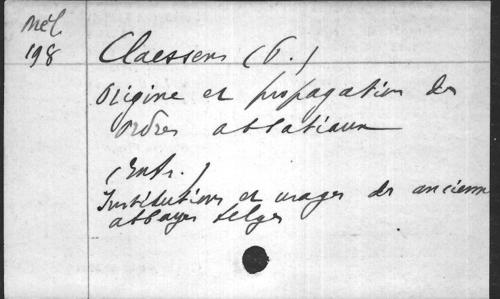 Mél.
198
Claessens (P.)
Origine et propagation des
ordres abbatiaux
(Extr.)
Institutions et usages des anciennes
abbayes belges